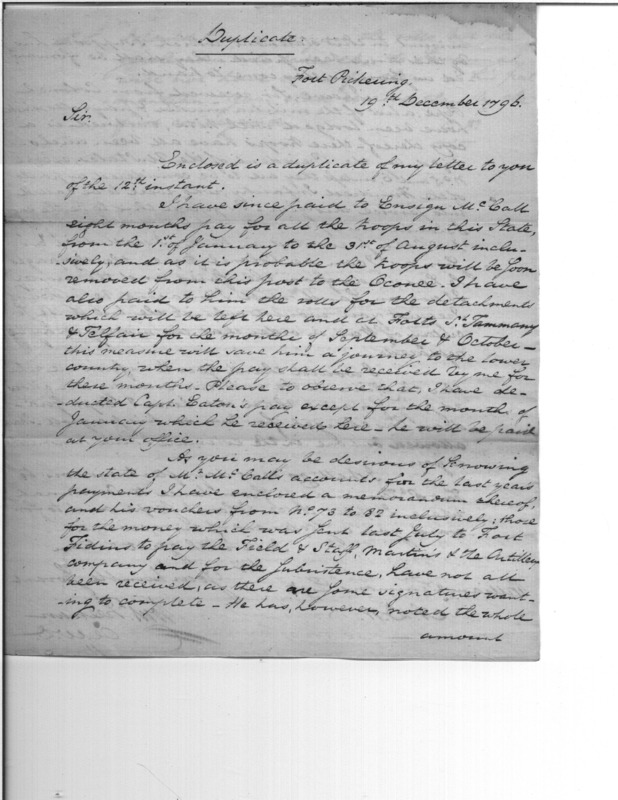 Duplicate.
Fort Pickering.
19th December 1796.
Sir.
Enclosed is a duplicate of my letter to you
of the 12th instant.
I have since paid to Ensign Mc Call
eight months pay for all the troops in this State,
from the 1st of January to the 31st of August inclu-
sively, and as it is probable the troops will be soon
removed from this post to the Oconee. I have
also paid to him the rolls for the detachments
which will be left here and at Forts St Tammany
& Telfair for the months of September & October –
this measure will save him a journey to the lower
country, when the pay shall be received by me for
these months. Please to observe that, I have de-
ducted Capt. Eaton's pay except for the month of
January which he received here – he will be paid
at your office.
As you may be desirous of knowing
the state of Mr Mc Calls accounts for the last years
payments I have enclosed a memorandum thereof,
and his vouchers from No 73 to 82 inclusively; those
for the money which was sent last July to Fort
Fidius to pay the Field & Staff, Martins & the Artillery
company and for the Subsistence, have not all
been received, as there are some signatures want-
ing to complete – He has, however, noted the whole
amount